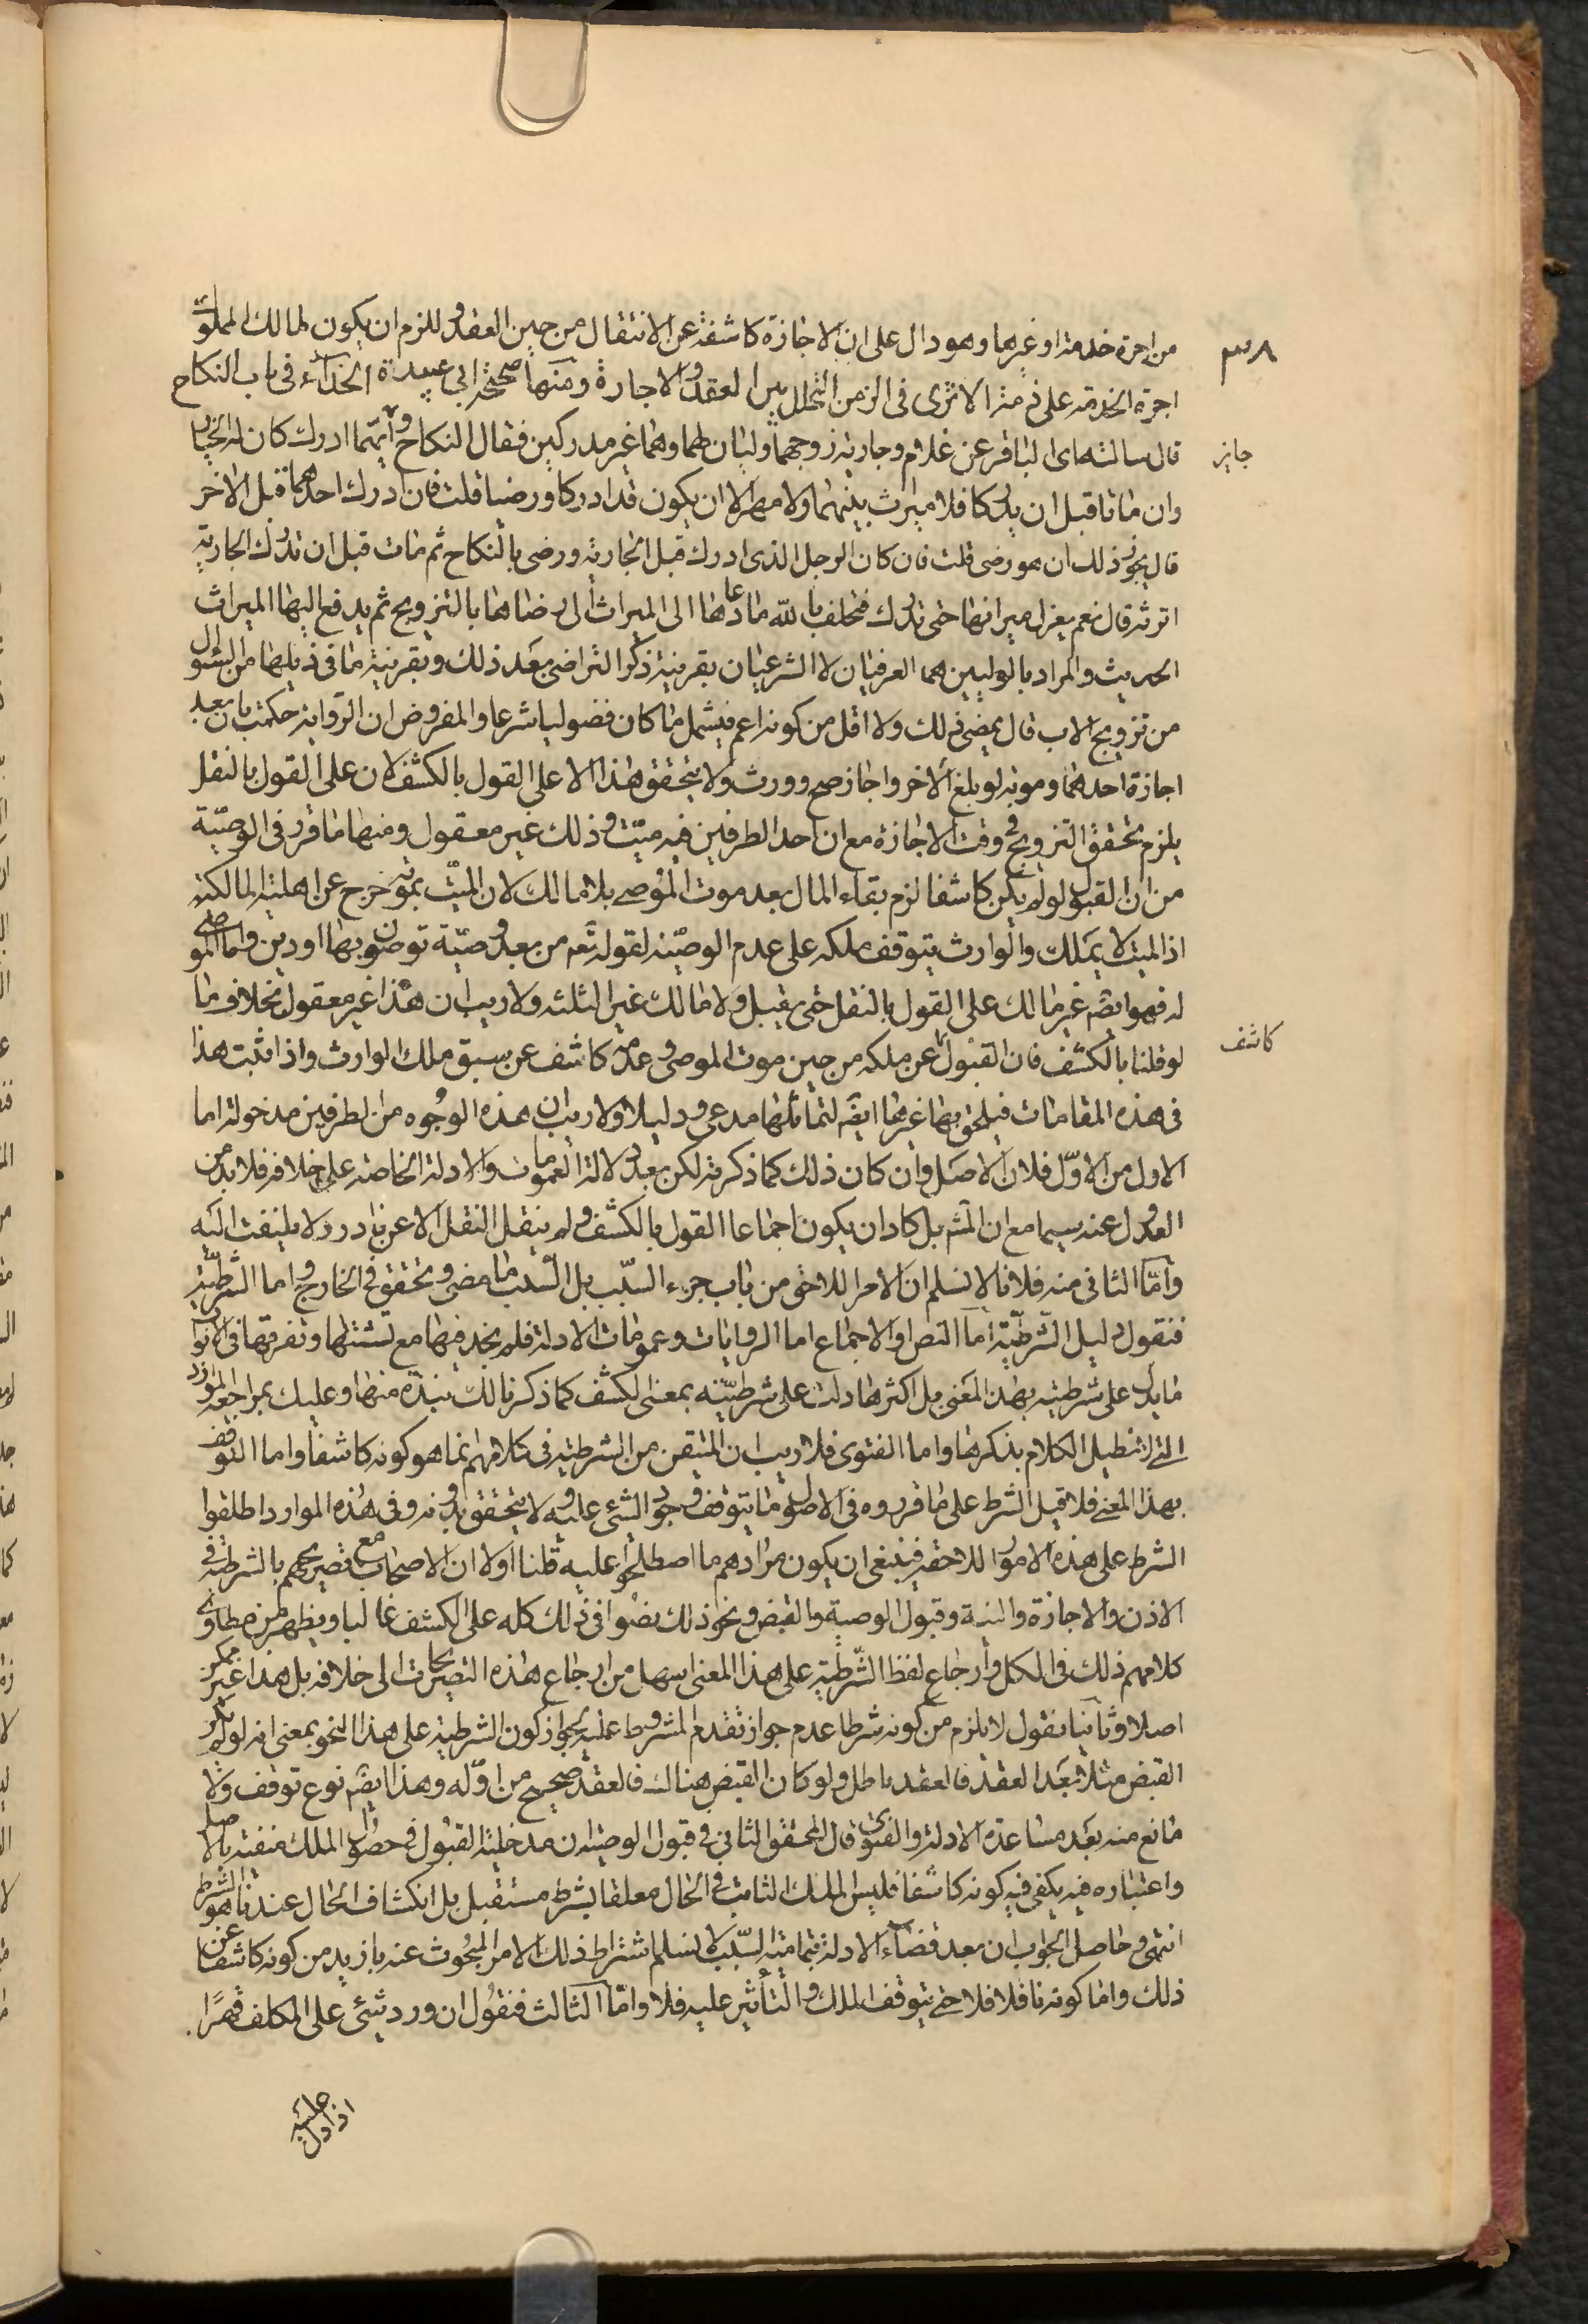 ٣٨
من اجرة خدمته او غيرها وهو دال على ان الاجازة كاشفة عن الانتقال من حين العقد وللزم ان يكون لمالك المملوك
اجرة الخدمة على ذمته الا ترى فى الزمن المتخلل بين العقد والاجازة ومنها صحيحة ابي عبيدة الحذاء فى باب النكاح
قال سالته اى الباقر عن غلام وجارية زوجهما وليان لهما وهما غير مدركين فقال النكاح جايز وايهما ادرك كان له الخيار
وان ماتا قبل ان يدركا فلا ميراث بينهما ولا مهر الا ان يكون قد ادركا ورضيا قلت فان ادرك احدهما قبل الاخر
قال يجوز ذلك ان هو رضى قلت فان كان الرجل الذى ادرك قبل الجارية ورضى بالنكاح ثم مات قبل ان تدرك الجارية
اترثه قال نعم يعزل ميراثها حتى تدرك فتحلف بالله ما دعاها الى الميراث الا رضاها بالتزويج ثم يدفع اليها الميراث
الحديث والمراد بالوليين هما العرفيان لا الشرعيان بقرينة ذكر التراضى بعد ذلك وبقرينة ما فى ذيلها من السئوال
من تزويج الاب قال يمضى ذلك ولا اقل من كونه اعم فيشمل ما كان فضوليا شرعا والمفروض ان الرواية حكمت بان بعد
اجازة احدهما وموته لو بلغ الاخر واجاز صح وورث ولا يتحقق هذا الا على القول بالكشف لان على القول بالنقل
يلزم تحقق التزويج فى وقت الاجازة مع ان احد الطرفين فيه ميّت وذلك غير معقول ومنها ما قرر فى الوصيّة
من ان القبول لو لم يكن كاشفا لزم بقاء المال بعد موت الموصى بلا مالك لان الميّت بموته خرج عن اهلية المالكية
اذ الميت لا يملك والوارث يتوقف ملكه على عدم الوصيّة لقوله تعم من بعد وصيّة توصون بها او دين واما الموصى
له فهو ايضم غير مالك على القول بالنقل حتى يقبل ولا مالك غير الثلثه ولا ريب ان هذا غير معقول بخلاف ما
لو قلنا بالكشف فان القبول كاشف عن ملكه من حين موت الموصى وعدمه كاشف عن سبق ملك الوارث واذا ثبت هذا
فى هذه المقامات فيلحق بها غيرها ايضم لتماثلها مدعى ودليلا ولا ريب ان هذه الوجوه من الطرفين مدخولة اما
الاول من الاوّل فلان الاصل وان كان ذلك كما ذكرته لكن بعد دلالة العمومات والادلة الخاصة على خلافه فلا بد من
العدول عنه سيما مع ان المشم بل كاد ان يكون اجماعا القول بالكشف ولم ينقل النقل الا عن نادر ولا يلتفت اليه
وامّا الثانى منه فلانا لا نسلم ان الامر اللاحق من باب جزء السبّب بل السّبب ما مضى وتحقق فى الخارج واما الشّرطيّة
فنقول دليل الشّرطيّة اما النص او الاجماع اما الروايات وعمومات الادلة فلم نجد فيها مع تشتتها وتفرقها فى الابواب
ما يدل على شرطيته بهذا المعنى بل اكثرها دلت على شرطيّته بمعنى الكشف كما ذكرنا لك نبذة منها وعليك بمراجعة الموارد
التى لا نطيل الكلام بذكرها واما الفتوى فلا ريب ان المتيقن من الشرطية فى كلامهم انما هو كونه كاشفا واما التوقف
بهذا المعنى فلا قيل الشرط على ما قرروه فى الاصول ما يتوقف وجود الشئ عليه ولا يتحقق بدونه وفى هذه الموارد اطلقوا
الشرط على هذه الامور اللاحقة فينبغى ان يكون مرادهم ما اصطلحوا عليه قلنا اولا ان الاصحاب مع تصريحهم بالشرطية فى
الاذن والاجازة والنية وقبول الوصية والقبض ونحو ذلك نصوا فى ذلك كله على الكشف غالبا ويظهر من مطاوى
كلامهم ذلك فى الكل وارجاع لفظ الشّرطيّة على هذا المعنى اسهل من ارجاع هذه التصريحات الى خلافه بل هذا غير ممكن
اصلا وثانيا نقول لا يلزم من كونه شرطا عدم جواز تقدم المشروط عليه لجواز كون الشرطية على هذا النحو بمعنى انه لو لم يكن
القبض مثلا بعد العقد فالعقد باطل ولو كان القبض هناك فالعقد صحيح من اوّله وهذا ايضم نوع توقف ولا
مانع منه بعد مساعدة الادلة والفتوى قال المحقق الثانى فى قبول الوصية ان مدخلية القبول فى حصول الملك منفية بالاصل
واعتباره فيه يكفى فيه كونه كاشفا فليس الملك الثابت فى الحال معلقا بشرط مستقبل بل انكشاف الحال عندنا هو الشرط
انتهى وحاصل الجواب ان بعد قضاء الادلة بتمامية السّبب لا نسلم اشتراط ذلك الامر المبحوث عنه بازيد من كونه كاشفا عن
ذلك واما كونه ناقلا فلا حتى يتوقف الملك والتأثير عليه فلا وامّا الثالث فنقول ان ورد شئ على المكلف قهرًا
جايز
كاشف
اذا دل